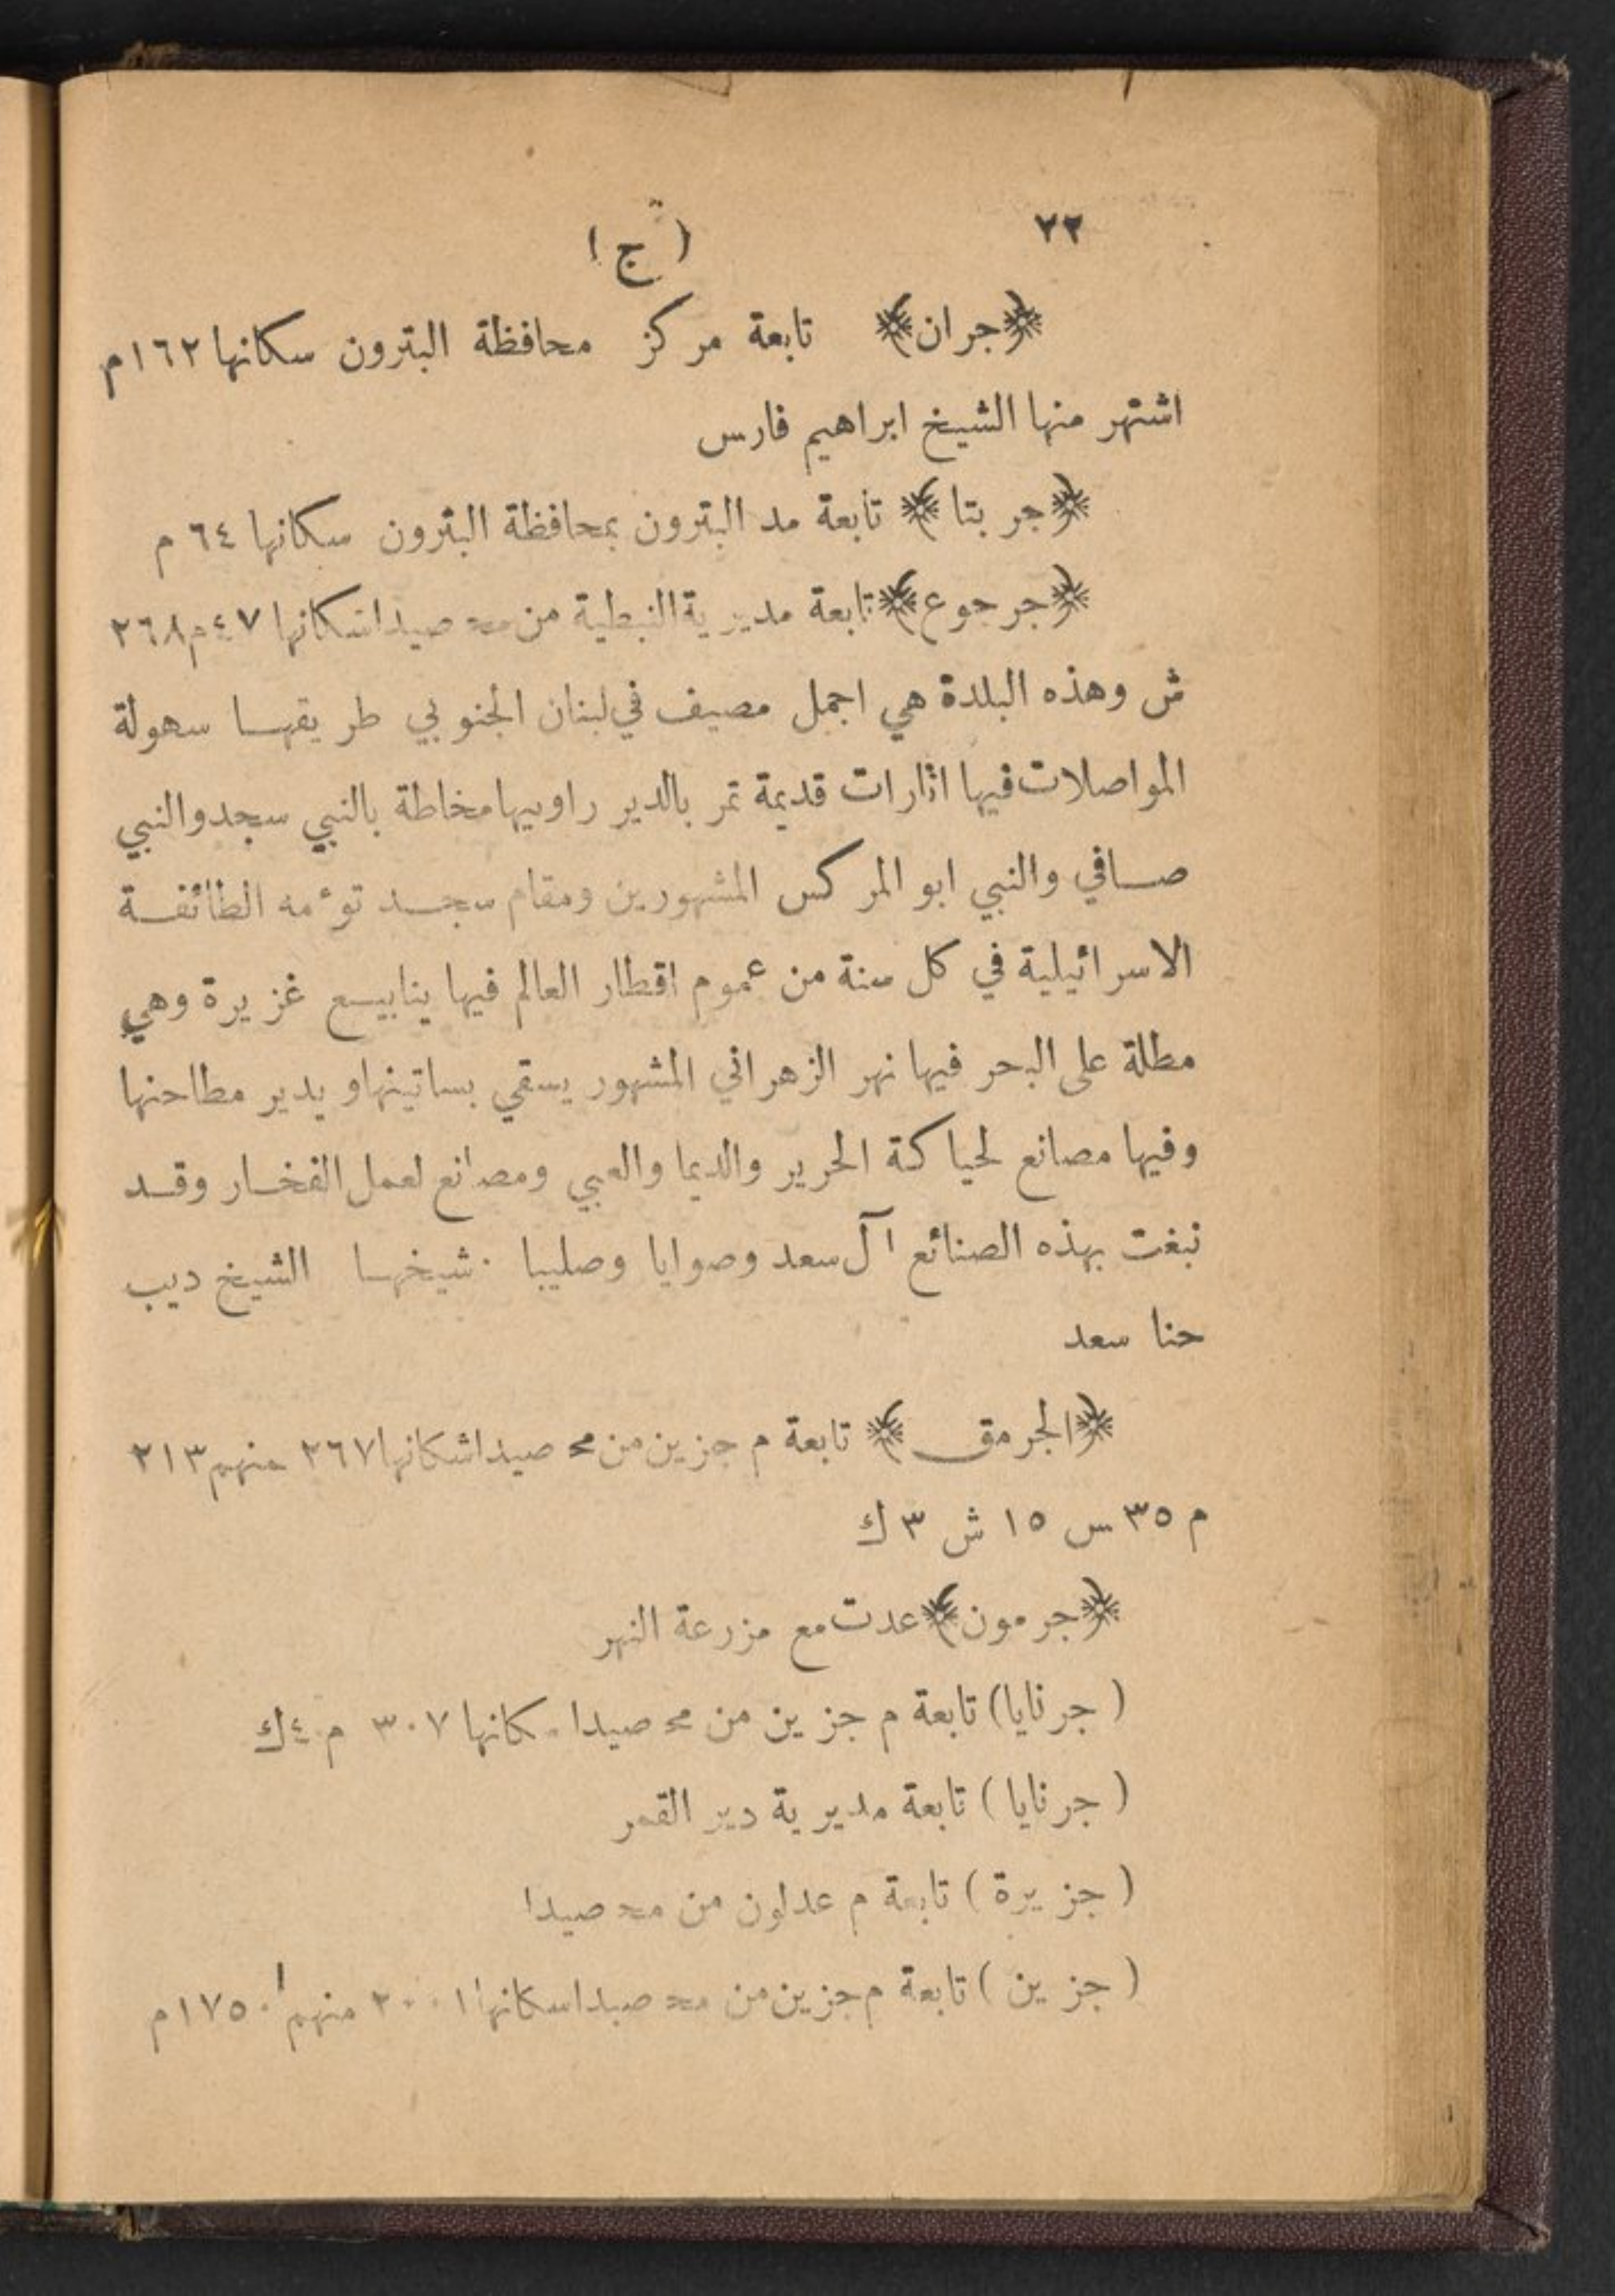 ٢٢
( ج )
﴿جران﴾ تابعة مركز محافظة البترون سكانها ١٦٢ م
اشتهر منها الشيخ ابراهيم فارس
﴿جر بتا﴾ تابعة مد البترون بمحافظة البترون سكانها ٦٤ م
﴿جرجوع﴾ تابعة مديرية النبطية من مح صيدا سكانها ٤٧ م ٢٦٨
ش وهذه البلدة هي اجمل مصيف في لبنان الجنوبي طريقهـا سهولة
المواصلات فيها اثارات قديمة تمر بالدير راوبيها مخاطة بالنبي سجد والنبي
صـافي والنبي ابو المركس المشهورين ومقام سجـد توءمه الطائفـة
الاسرائيلية في كل سنة من عموم اقطار العالم فيها ينابيـع غزيرة وهي
مطلة على البحر فيها نهر الزهراني المشهور يسقي بساتينها و يدير مطاحنها
وفيها مصانع لحياكة الحرير والديما والعبي ومصانع لعمل الفخـار وقـد
نبغت بهذه الصنائع آل سعد وصوايا وصليبا . شيخهـا الشيخ ديب
حنا سعد
﴿الجرمق﴾ تابعة م جزين من مح صيدا سكانها ٢٦٧ منهم ٢١٣
م ٣٥ س ١٥ ش ٣ ك
﴿جرمون﴾ عدت مع مزرعة النهر
( جرنايا ) تابعة م جزين من مح صيدا سكانها ٣٠٧ م ٤ ك
( جرنايا ) تابعة مديرية دير القمر
( جزيرة ) تابعة م عدلون من مح صيدا
( جزين ) تابعة م جزين من مح صيدا سكانها ٢٠٠١ منهم ١٧٥٠ م